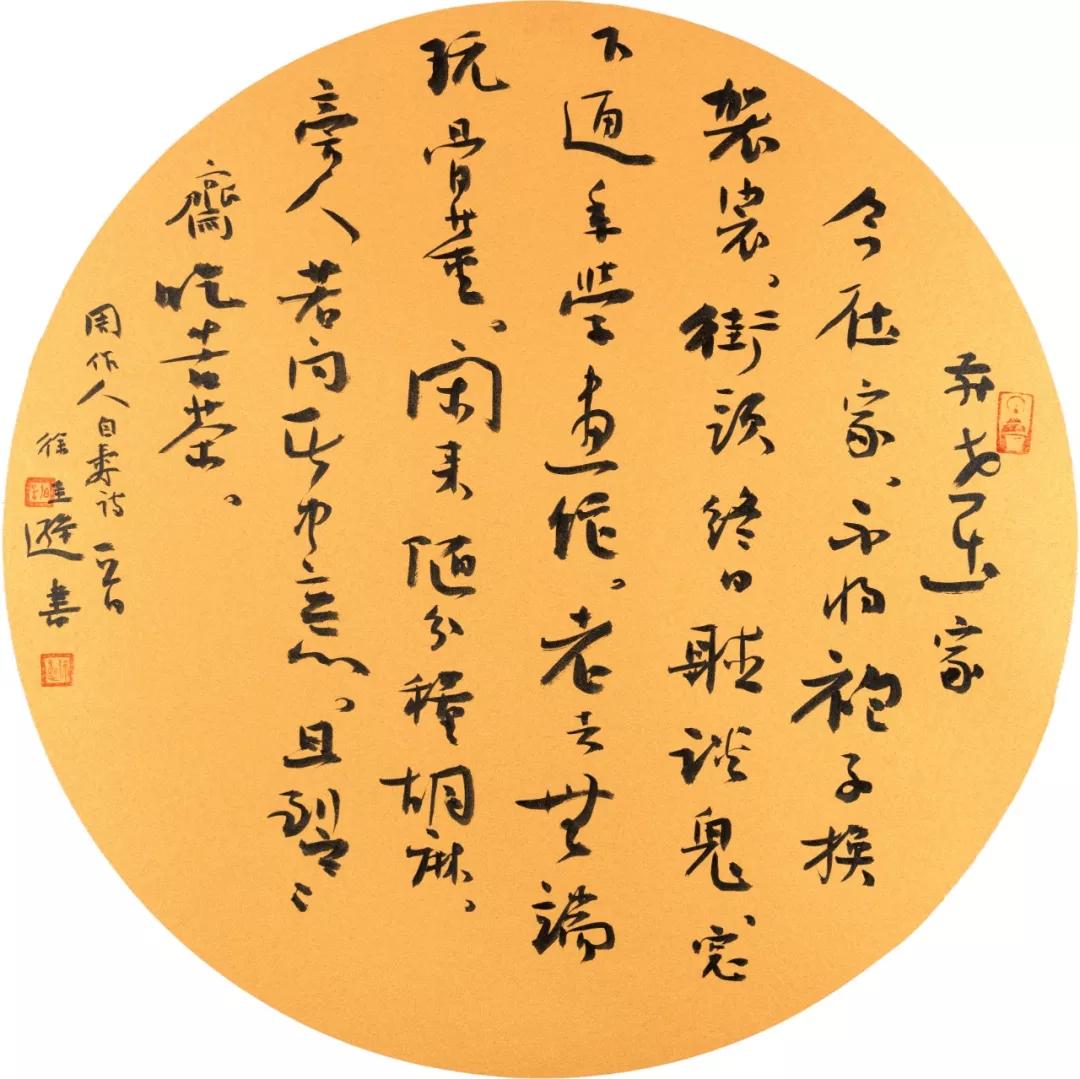 前世出家
今在家、不将袍子換
袈裟、街頭終日聽談鬼、窓
下通年學畫蛇。老去無端
玩骨董、闲来随分種胡麻。
旁人若问其中意、且到寒
齋吃苦茶。
周作人自壽诗一首
徐 書